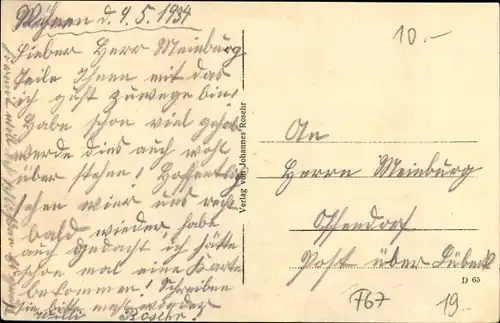 d. 9.5. 1934
Lieber Herr Meinburg
Teile Ihnen mit das
ich gut zuwege bin!
Habe schon viel gehabt
werde dies auch wohl
über stehen! Hoffentlich
sehen wier uns recht
bald wieder habe
auch gedacht ich hätte
schon mal eine Karte
bekommen! Schreiben
Sie bitte mal wieder
10.-
Verlag von Johannes Rosehr
An
Herrn Meinburg
Offendorf
Post über Lübeck
D 65
F67
19.